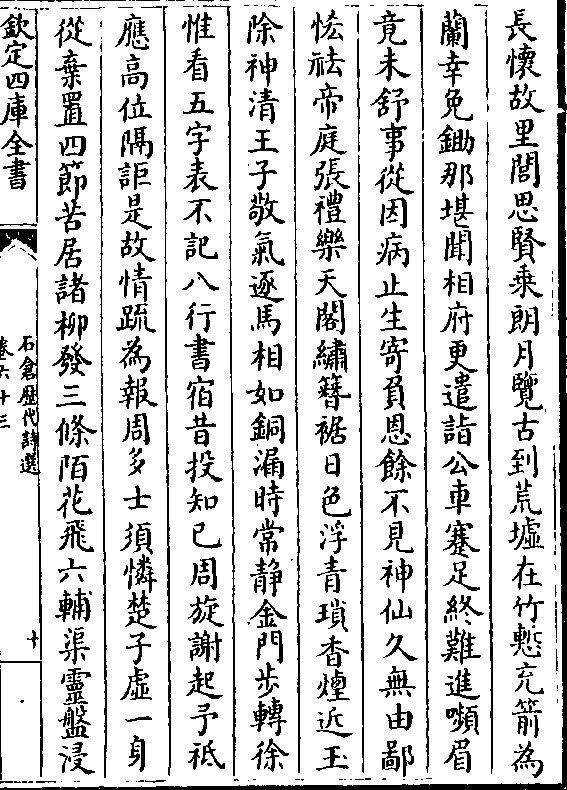 長懷故里閭思賢乗朗月覽古到荒墟在竹慙充箭為
蘭幸免鋤那堪聞相府更遣詣公車蹇足終難進嚬眉
竟未舒事從因病止生寄負恩餘不見神仙久無由鄙
恡祛帝庭張禮樂天閣繡簪裾日色浮青瑣香煙近玉
除神清王子敬氣逐馬相如銅漏時常静金門步轉徐
惟看五字表不記八行書宿昔投知己周旋謝起予祗
應高位隔詎是故情疏為報周多士須憐楚子虛一身
從棄置四節苦居諸柳發三條陌花飛六輔渠靈盤浸
欽定四庫全書
石倉歷代詩選
卷六十三
十